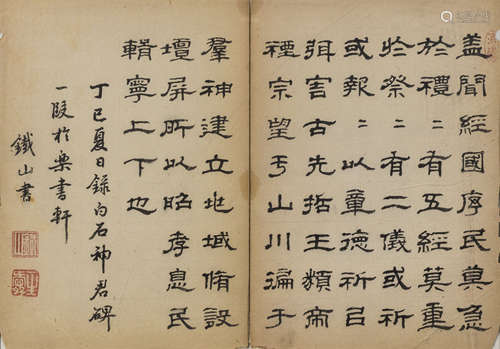 蓋聞經國序民莫急
於禮〻有五經莫重
於祭〻有二儀或祈
或報〻以章德祈㠯
弭害古先喆王類帝
禋宗望于山川徧于
羣神建立兆域脩設
壇屏所以昭孝息民
輯寧上下也
丁巳夏日錄白石神君碑
一段於樂書軒
鐵山書